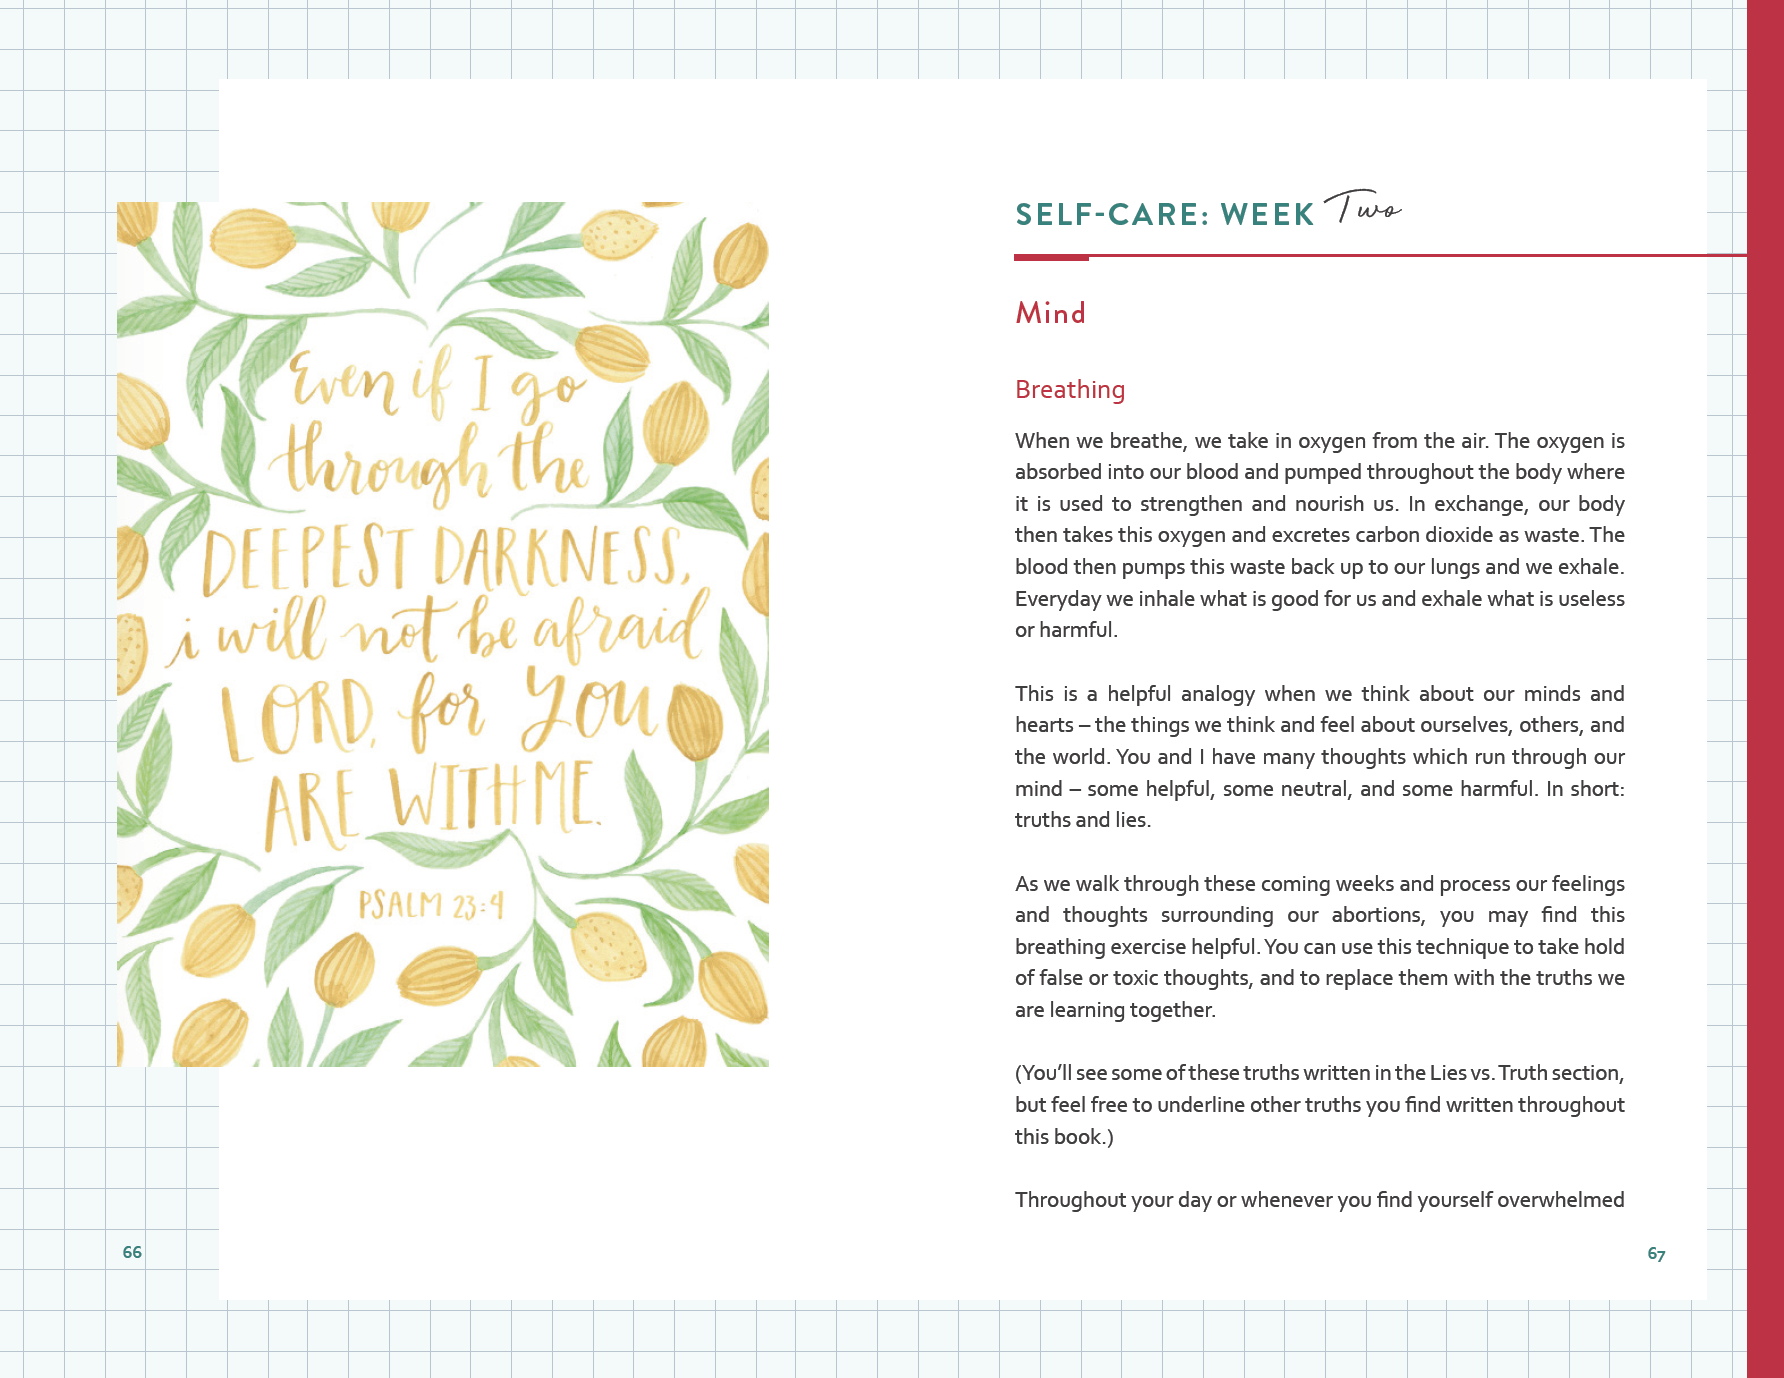 Even if I go
through the
DEEPEST DARKNESS,
i will not be afraid
LORD, for YOU
ARE WITH ME.
PSALM 23:4
66
SELF-CARE: WEEK Two
Mind
Breathing
When we breathe, we take in oxygen from the air. The oxygen is
absorbed into our blood and pumped throughout the body where
it is used to strengthen and nourish us. In exchange, our body
then takes this oxygen and excretes carbon dioxide as waste. The
blood then pumps this waste back up to our lungs and we exhale.
Everyday we inhale what is good for us and exhale what is useless
or harmful.
This is a helpful analogy when we think about our minds and
hearts – the things we think and feel about ourselves, others, and
the world. You and I have many thoughts which run through our
mind – some helpful, some neutral, and some harmful. In short:
truths and lies.
As we walk through these coming weeks and process our feelings
and thoughts surrounding our abortions, you may find this
breathing exercise helpful. You can use this technique to take hold
of false or toxic thoughts, and to replace them with the truths we
are learning together.
(You’ll see some of these truths written in the Lies vs. Truth section,
but feel free to underline other truths you find written throughout
this book.)
Throughout your day or whenever you find yourself overwhelmed
67